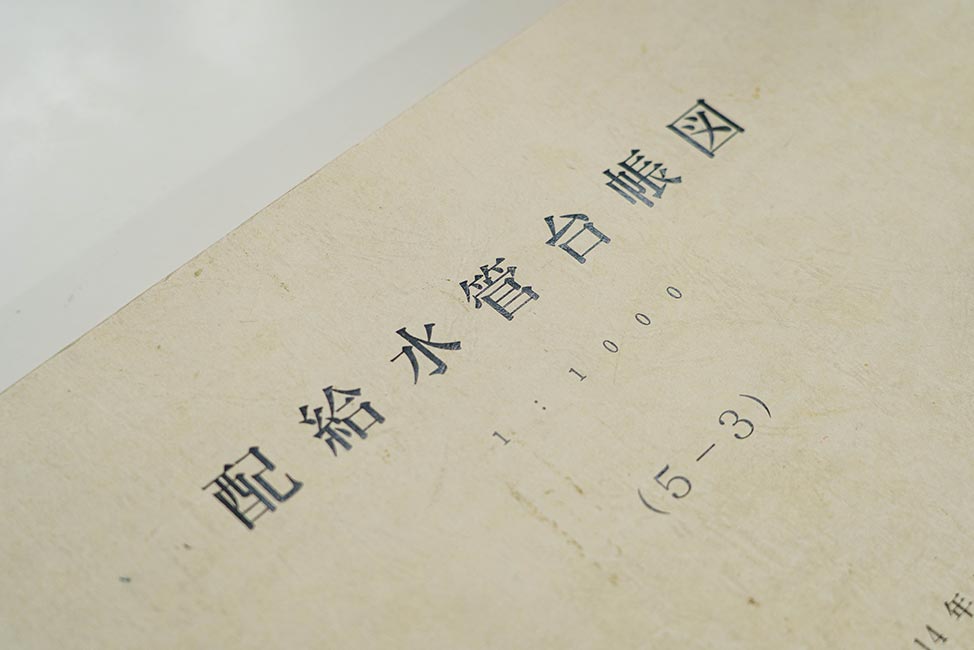 配給水管台帳図
1:1000
(5-3)
14年